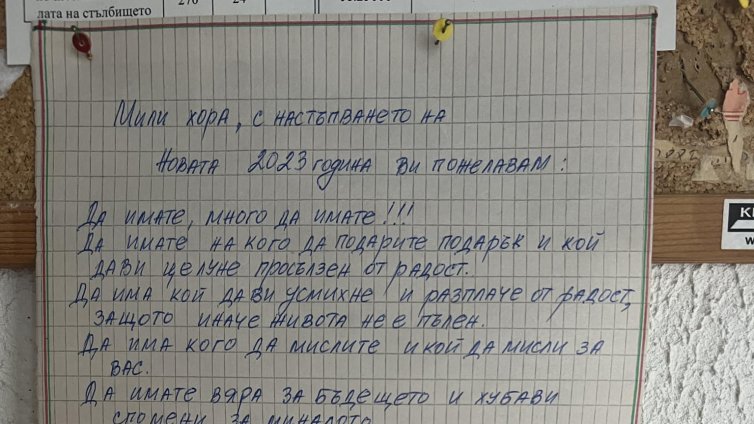 лата на стълбището 270 24
Мили хора, с настъпването на
Новата 2023 година Ви пожелавам:
Да имате, много да имате!!!
Да имате на кого да подарите подарък и кой
дави целуне просълзен от радост.
Да има кой дави усмихне и разплаче от радост,
защото иначе живота не е пълен.
Да има кого да мислите и кой да мисли за
вас.
Да имате вяра за бъдещето и хубави
спомени за миналото